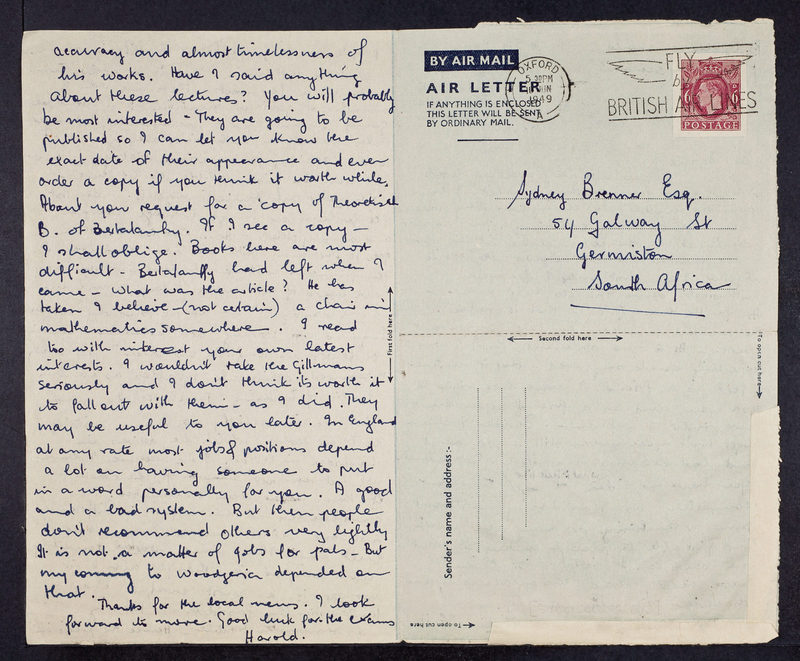 accuracy and almost timelessness of
his works. Have I said anything
about these lectures? You will probably
be most interested - They are going to be
published so I can let you know the
exact date of their appearance and even
order a copy if you think it worth while.
About you request for a copy of Theoretical
B. of Bertalanffy. If I see a copy -
I shall oblige. Books here are most
difficult. Bertalanffy had left when I
came - what was the article? He has
taken I believe - (not certain) a chair in
mathematics somewhere. I read
too with interest your own latest
interests. I wouldn't take the Gillmans
seriously and I don't think its worth it
to fall out with them - as I did. They
may be useful to you later. In England
at any rate most jobs & positions depend
a lot on having someone to put
in a word personally for you. A good
and a bad system. But then people
don't recommend others very lightly
It is not a matter of jobs for pals - But
my coming to depended on
that.
Thanks for the local news. I look
forward to more. Good luck for the exams
Harold.
First fold here
BY AIR MAIL
AIR LETTER
IF ANYTHING IS ENCLOSED
THIS LETTER WILL BE SENT
BY ORDINARY MAIL.
OXFORD
5.30PM
1949
A
FLY
BRITISH AIRLINES
POSTAGE
Sydney Brenner Esq.
54 Galway St
Germiston
South Africa
Second fold here
To open cut here
Sender's name and address:-
To open cut here